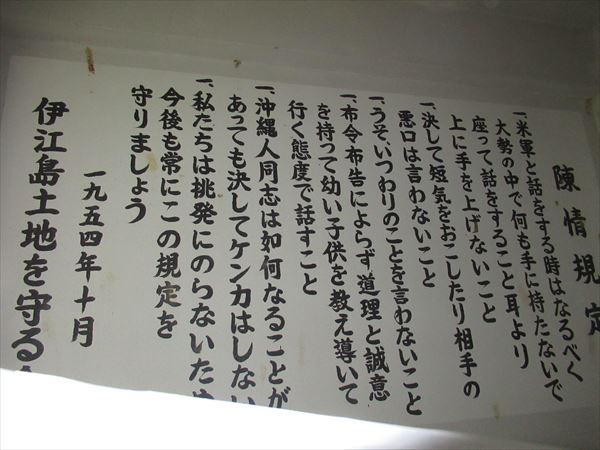 陳情規定
一、米軍と話をする時はなるべく
大勢の中で何も手に持たないで
座って話をすること耳より
上に手を上げないこと
一、決して短気をおこしたり相手の
悪口は言わないこと
一、うそ、いつわりのことを言わないこと
一、布令布告によらず道理と誠意
を持って幼い子供を教え導いて
行く態度で話すこと
一、沖縄人同志は如何なることが
あっても決してケンカはしない
一、私たちは挑発にのらないため
今後も常にこの規定を
守りましょう
一九五四年十月
伊江島土地を守る